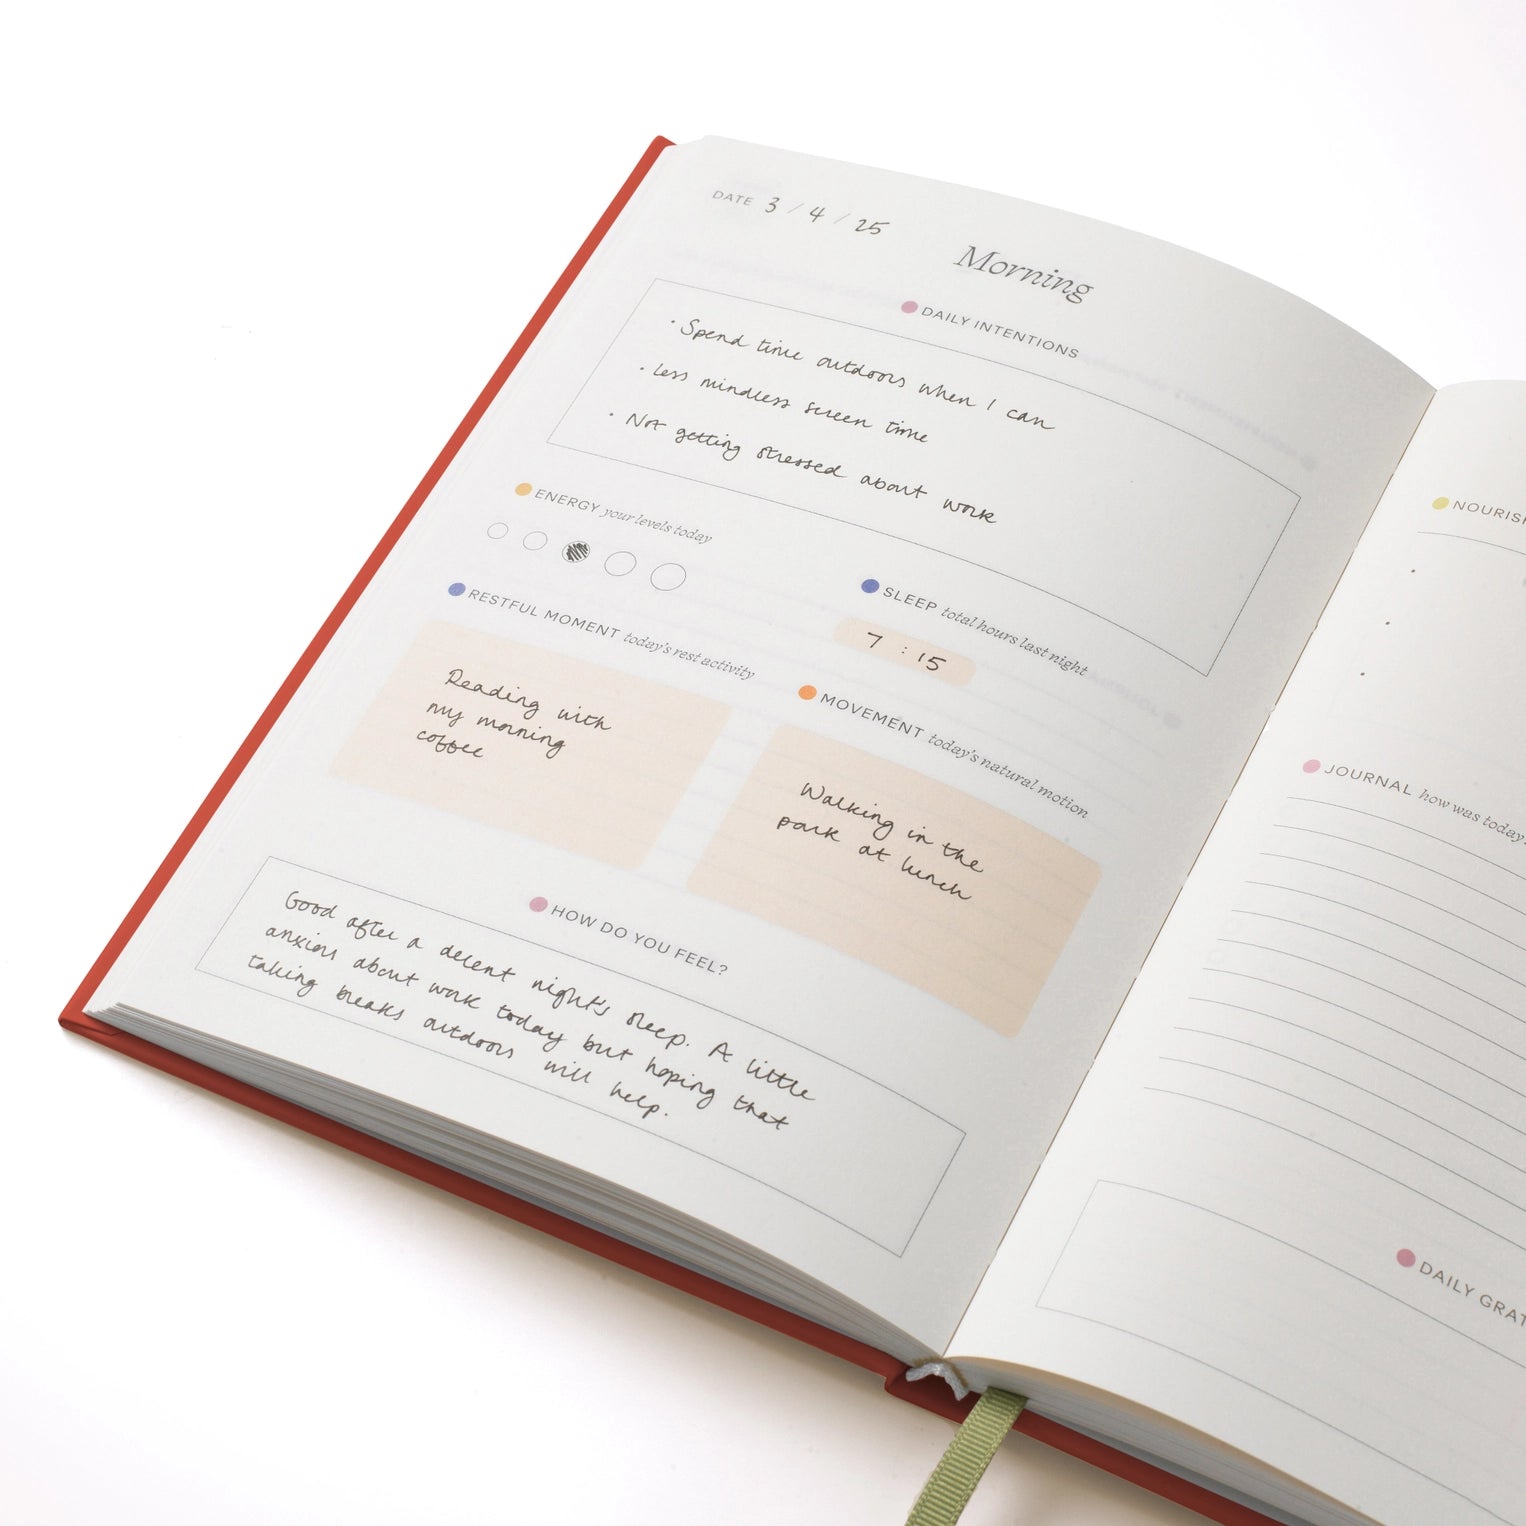 DATE 3 / 4 / 25
Morning
DAILY INTENTIONS
· Spend time outdoors when I can
· Less mindless screen time
· Not getting stressed about work
ENERGY your levels today
SLEEP total hours last night
7 : 15
RESTFUL MOMENT today's rest activity
Reading with
my morning
coffee
MOVEMENT today's natural motion
Walking in the
park at lunch
HOW DO YOU FEEL?
Good after a decent night's sleep. A little
anxious about work today but hoping that
taking breaks outdoors will help.
NOURISH
JOURNAL how was today
DAILY GRAT